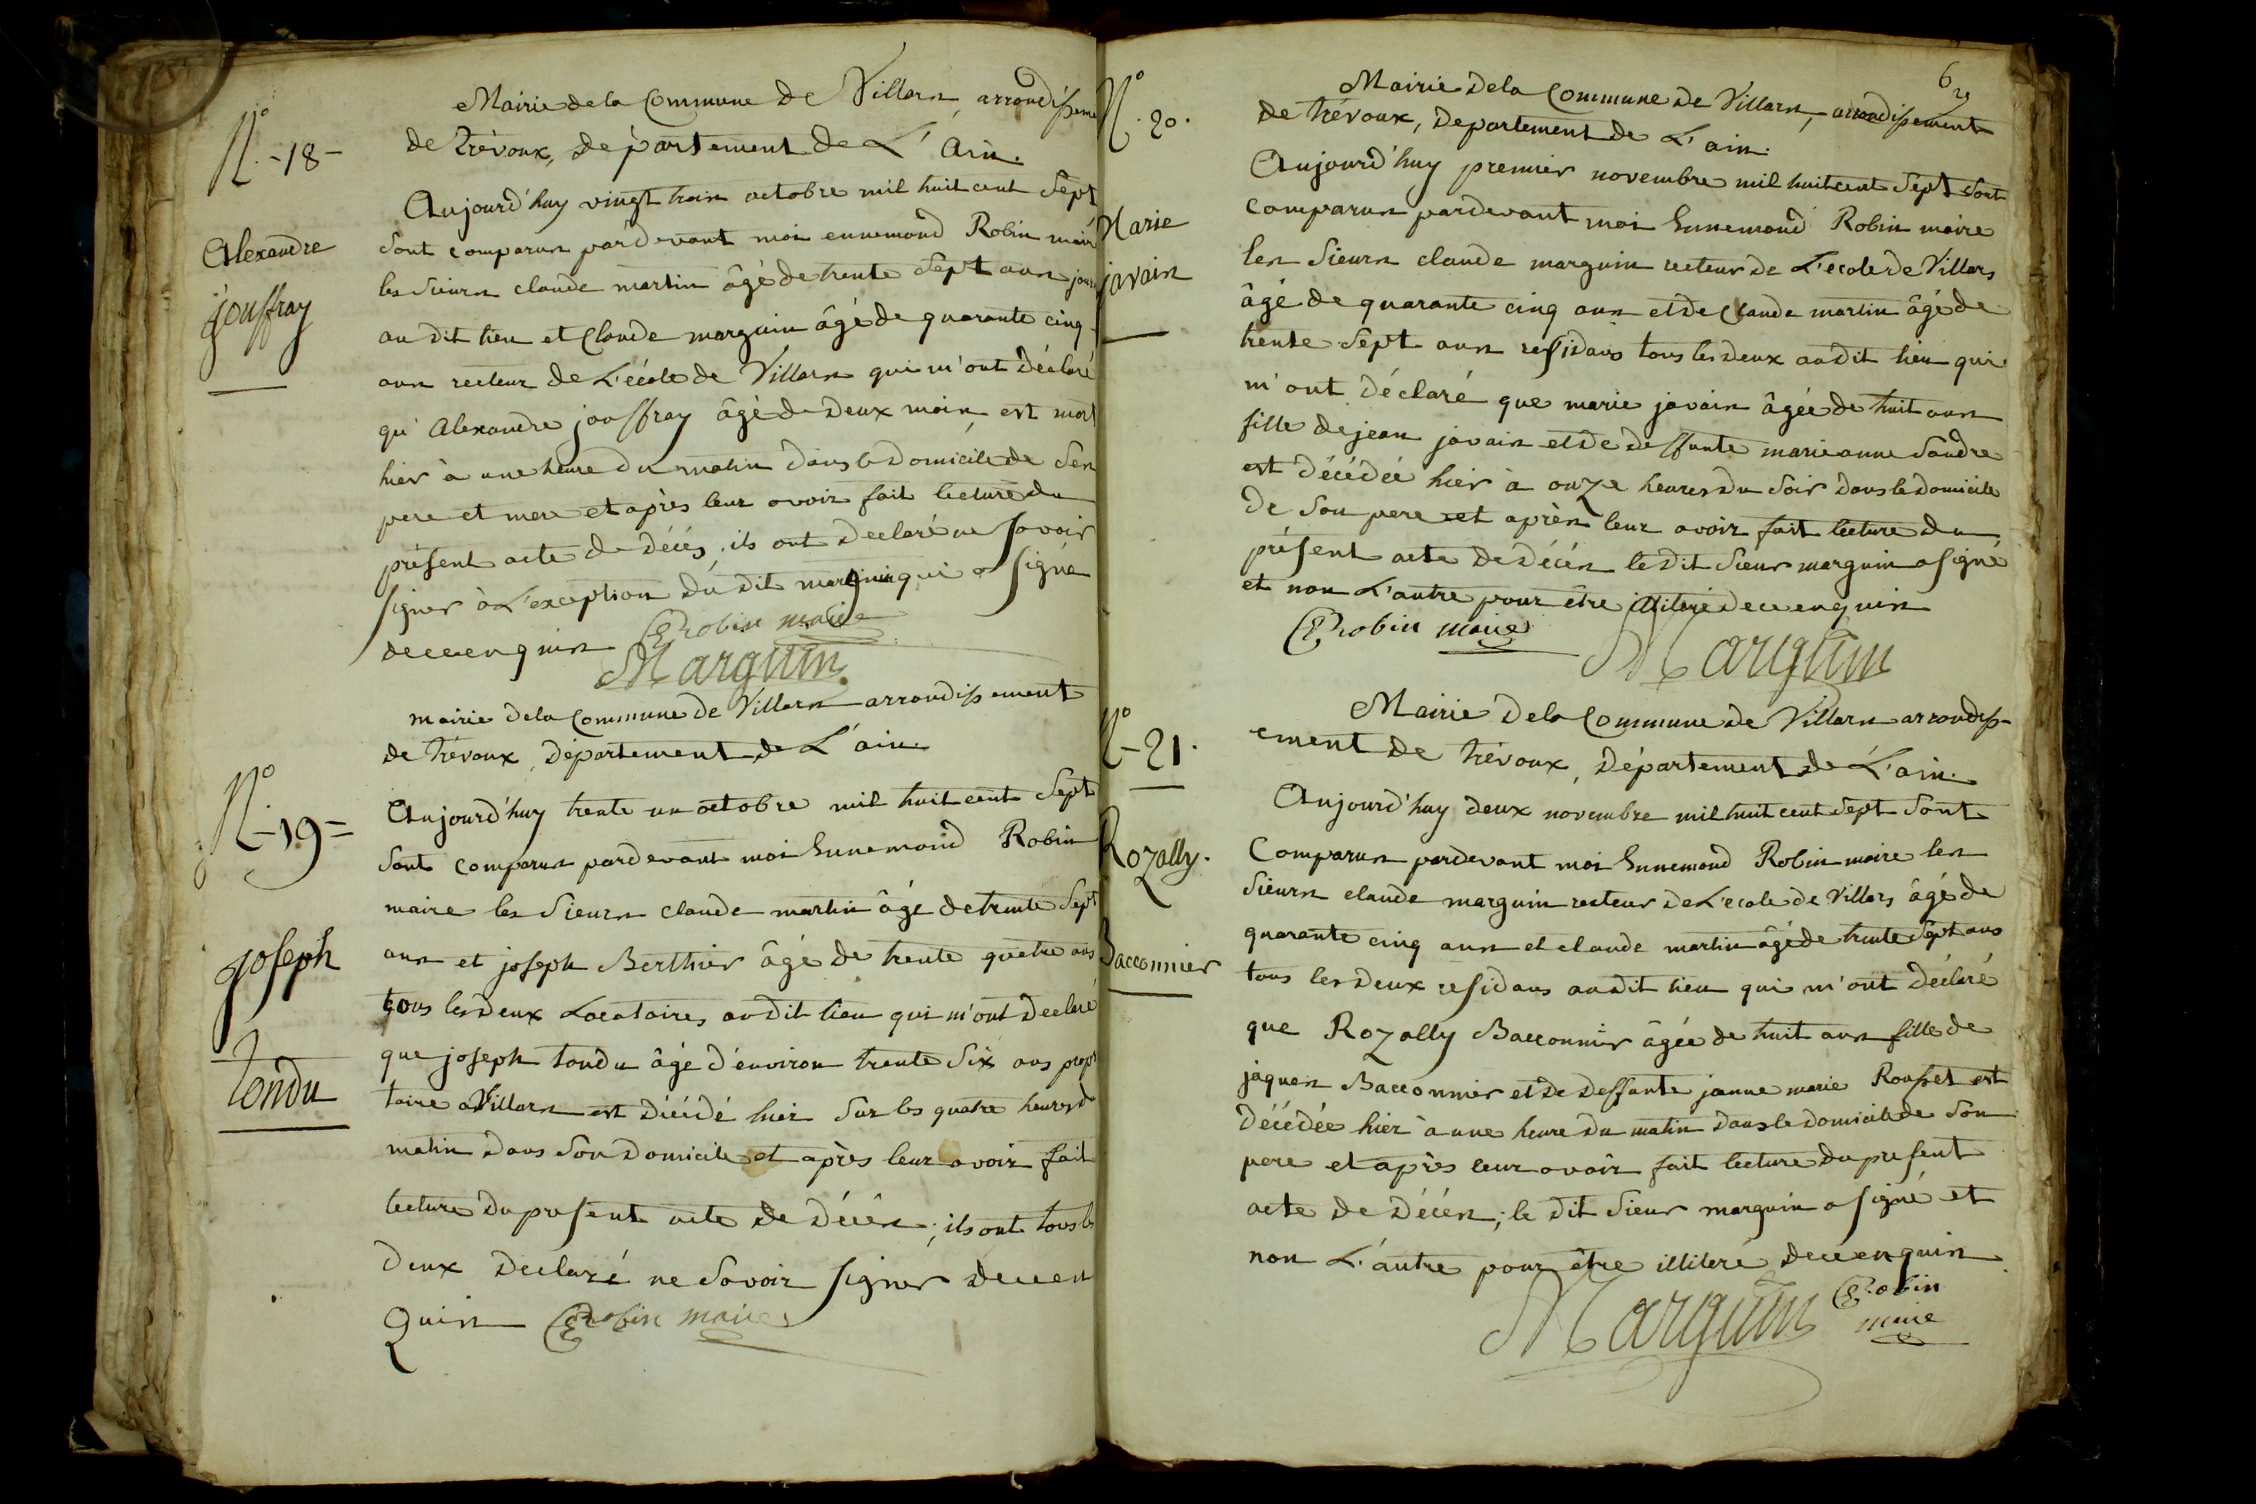 N.° -18-
Alexandre
jouffray
Mairie de la Commune de Villars arrondisseme
de Trévoux, département de L'ain.
Aujourd'huy vingt trois octobre mil huit cent Sept
Sont comparus pardevant moi ennemond Robin maire
les Sieurs claude martin âgé de trente Sept ans jour
au dit lieu et Claude marguin âgé de quarante cinq
ans recteur de L'école de Villars qui m'ont Déclaré
qu'Alexandre jouffray âgé de Deux mois est mort
hier à une heure Du matin Dans le Domicile de Ses
pere et mere et après leur avoir fait lecture du
présent acte de Décés, ils ont Declaré ne Savoir
signer à L'exception du dit marguin qui a Signé
de ce enquis ERobin maire
Marguin
N.° -19=
joseph
tondu
mairie de la Commune de Villars arrondissement
de Trévoux, Département de L'ain.
Aujourd'huy trente un octobre mil huit cent Sept
Sont comparus pardevant moi Ennemond Robin
maire les Sieurs claude martin âgé de trente Sept
ans et joseph Berthier âgé de trente quatre ans
tous les Deux Locataires au dit lieu qui m'ont Declaré
que joseph tondu âgé d'environ trente Six ans propr
taire à Villars est Décédé hier Sur les quatre heures du
matin Dans Son Domicile et après leur avoir fait
lecture Du present acte de Décès; ils ont tous les
Deux Declaré ne Savoir Signer de ce en
Quis ERobin maire
6
N.° .20.
Marie
javain
Mairie De la Commune de Villars, arrondissement
de trévoux, Departement de L'ain.
Aujourd'huy premier novembre mil huit cent Sept Sont
comparus pardevant moi Ennemond Robin maire
les Sieurs claude marguin recteur de L'ecole de Villars
âgé de quarante cinq ans et de Claude martin âgé de
trente Sept ans residans tous les deux audit lieu qui
m'ont Déclaré que marie javain âgée de huit ans
fille de jean javain et de deffunte marie anne Saudre
est Décédée hier à onze heures du Soir Dans le Domicile
De Son pere et après leur avoir fait lecture du
présent acte de Décés le dit Sieur marguin a signé
et non L'autre pour être illiteré de ce enquis
ERobin maire
Marguin
N.° -21.
Rozally.
Bacconnier
Mairie De la Commune de Villars arrondiss-
ement de trévoux, Département de L'ain.
Aujourd'huy Deux novembre mil huit cent Sept Sont
Comparus pardevant moi Ennemond Robin maire les
Sieurs claude marguin recteur de L'ecole de Villars âgé de
quarante cinq ans et claude martin âgé de trente Sept ans
tous les Deux residans audit lieu qui m'ont Déclaré
que Rozally Bacconnier âgée de huit ans fille de
jaques Bacconnier et de deffunte janne marie Rousset est
Décédée hier à une heure du matin Dans le domicile de Son
pere et après leur avoir fait lecture du present
acte de Décés; le dit Sieur marguin a signé et
non L'autre pour être illiteré de ce enquis
Marguin ERobin
maire